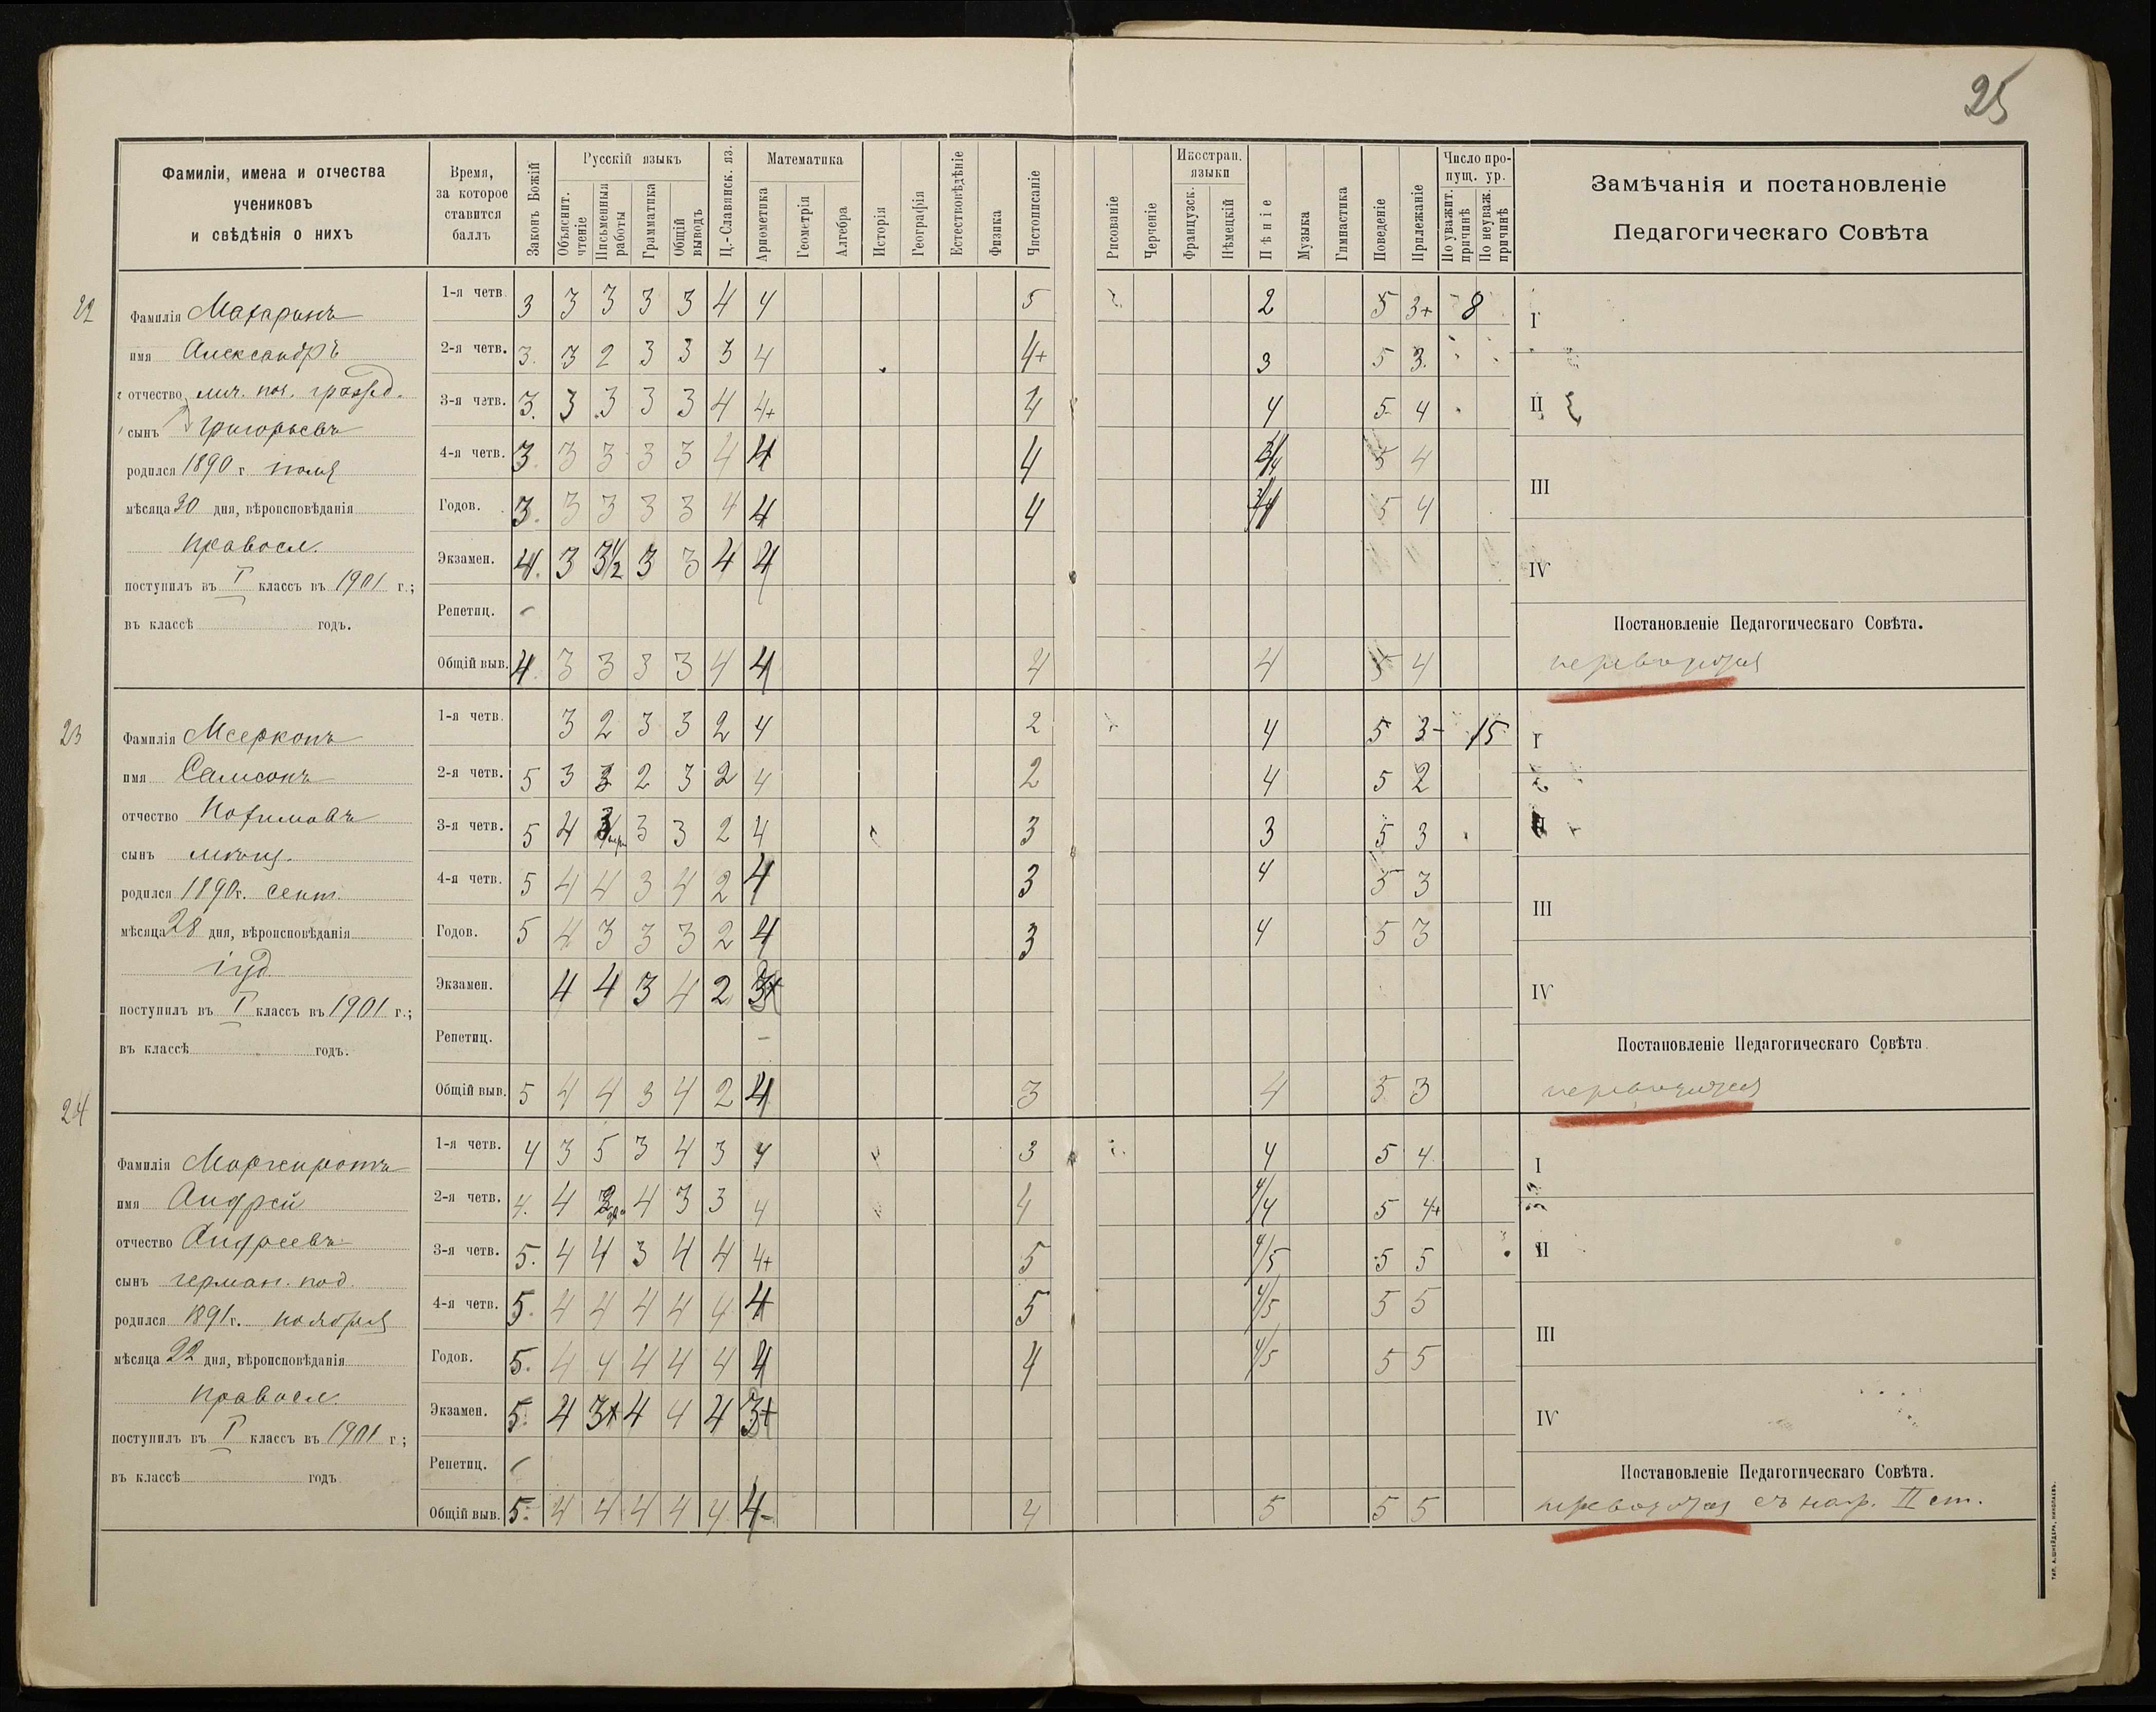 25
Фамиліи, имена и отчества
учениковъ
и свѣдѣнія о нихъ
Время,
за которое
ставится
баллъ
Законъ Божій
Русскій языкъ
Объяснит. чтеніе
Письменныя работы
Грамматика
Общій выводъ
Ц.-Славянск. яз.
Математика
Ариѳметика
Геометрія
Алгебра
Исторія
Географія
Естествовѣдѣніе
Физика
Чистописаніе
Рисованіе
Черченіе
Иностран. языки
Французск.
Нѣмецкій
Пѣніе
Музыка
Гимнастика
Поведеніе
Прилежаніе
Число пропущ. ур.
По уважит. причинѣ
По неуваж. причинѣ
Замѣчанія и постановленіе
Педагогическаго Совѣта
22
Фамилія Махаринъ
имя Александръ
отчество лич. поч. гражд.
сынъ Григорьевъ
родился 1890 г. іюля
мѣсяца 30 дня, вѣроисповѣданія
правосл.
поступилъ въ I классъ въ 1901 г.;
въ классѣ годъ.
1-я четв. 3 3 3 3 3 4 4 5 2 5 3+ 8
2-я четв. 3. 3 2 3 3 3 4 4+ 3 5 3.
3-я четв. 3. 3 3 3 3 4 4+ 4 4 5 4
4-я четв. 3. 3 3 3 3 4 4 4 3/4 5 4
Годов. 3. 3 3 3 3 4 4 4 3/4 5 4
Экзамен. 4. 3 3 1/2 3 3 4 4
Репетиц. -
Общій выв. 4. 3 3 3 3 4 4 4 4 5 4
I
II
III
IV
Постановленіе Педагогическаго Совѣта.
переводится
23
Фамилія Меерконъ
имя Самсонъ
отчество Нохимовъ
сынъ мѣщ.
родился 1890 г. сент.
мѣсяца 28 дня, вѣроисповѣданія
іуд.
поступилъ въ I классъ въ 1901 г.;
въ классѣ годъ.
1-я четв. 3 2 3 3 2 4 2 4 5 3- 15
2-я четв. 5 3 3 2 3 2 4 2 4 5 2
3-я четв. 5 4 3 3 3 2 4 3 3 5 3
4-я четв. 5 4 4 3 4 2 4 3 4 5 3
Годов. 5 4 3 3 3 2 4 3 4 5 3
Экзамен. 4 4 3 4 2 3+
Репетиц. -
Общій выв. 5 4 4 3 4 2 4 3 4 5 3
I
II
III
IV
Постановленіе Педагогическаго Совѣта.
переводится
24
Фамилія
имя Андрей
отчество Андреевъ
сынъ герман. под.
родился 1891 г. ноября
мѣсяца 22 дня, вѣроисповѣданія
правосл.
поступилъ въ I классъ въ 1901 г.;
въ классѣ годъ
1-я четв. 4 3 5 3 4 3 4 3 4 5 4
2-я четв. 4. 4 3 4 3 3 4 4 4/4 5 4+
3-я четв. 5. 4 4 3 4 4 4+ 5 4/5 5 5
4-я четв. 5. 4 4 4 4 4 4 5 4/5 5 5
Годов. 5. 4 4 4 4 4 4 4 4/5 5 5
Экзамен. 5. 4 3+ 4 4 4 3+
Репетиц. -
Общій выв. 5. 4 4 4 4 4 4- 4 5 5 5
I
II
III
IV
Постановленіе Педагогическаго Совѣта.
переводится съ нагр. II ст.
ТИП. А. ШНЕЙДЕРА, НИКОЛАЕВЪ.